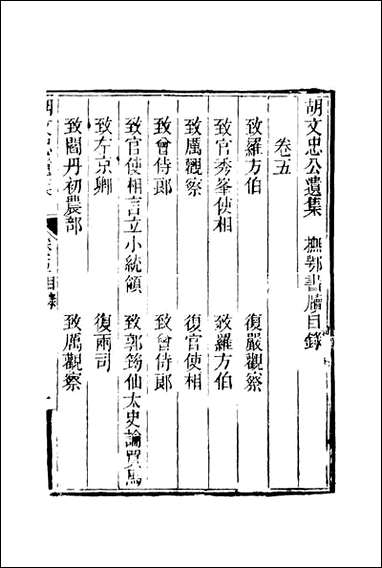 胡文忠公遺集　撫鄂書牘目錄
卷五
致羅方伯　復嚴觀察
致官秀峯使相　致羅方伯
致厲觀察　復官使相
致曾侍郎　致曾侍郎
致官使相言立小統領　致郭筠仙太史論買馬
致左京卿　復兩司
致閻丹初農部　致厲觀察